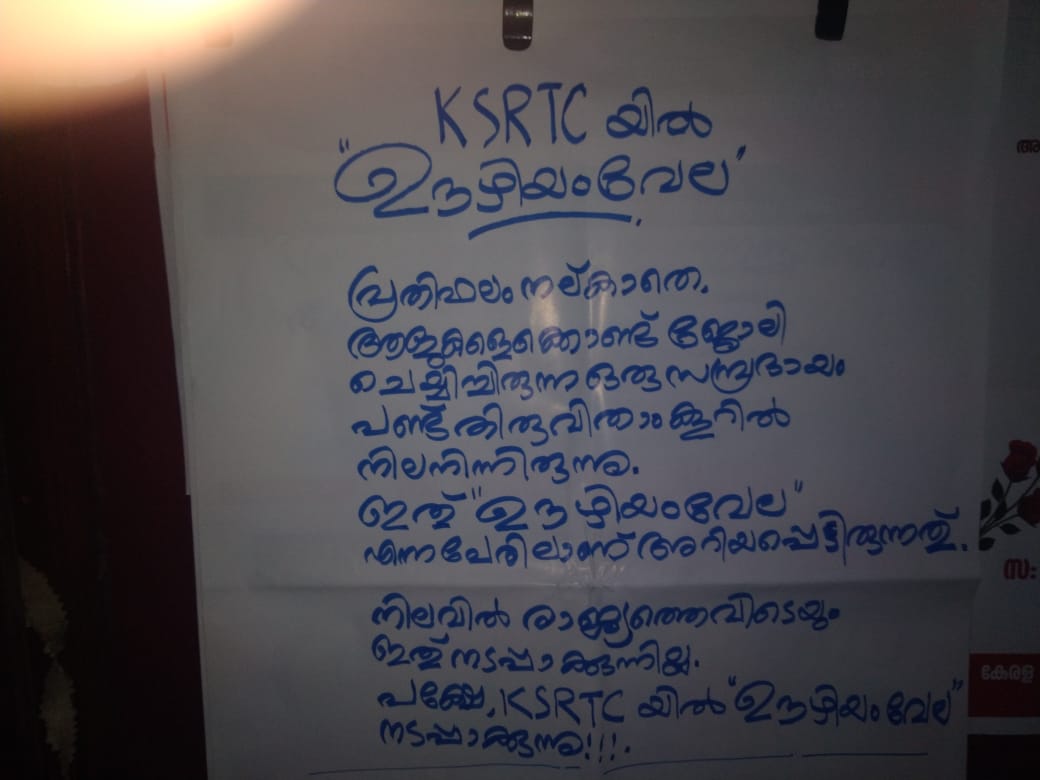 KSRTC യിൽ
"ഊഴിയംവേല"
പ്രതിഫലം നല്കാതെ.
ആളുകളെക്കൊണ്ട് ജോലി
ചെയ്യിച്ചിരുന്ന ഒരു സമ്പ്രദായം
പണ്ട് തിരുവിതാംകൂറിൽ
നിലനിന്നിരുന്നു.
ഇത് "ഊഴിയംവേല"
എന്ന പേരിലാണ് അറിയപ്പെട്ടിരുന്നത്.
നിലവിൽ രാജ്യത്തെവിടെയും
ഇത് നടപ്പാക്കുന്നില്ല.
പക്ഷേ, KSRTC യിൽ "ഊഴിയംവേല"
നടപ്പാക്കുന്നു!!!.
സ:
കേരള